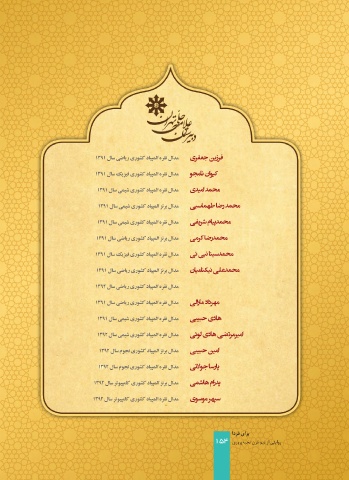 دبیرستان علامه حلی تهران
فرزین جعفری مدال نقره المپیاد کشوری ریاضی سال ۱۳۹۱
کیوان نامجو مدال نقره المپیاد کشوری فیزیک سال ۱۳۹۱
محمد امیدی مدال نقره المپیاد کشوری شیمی سال ۱۳۹۱
محمد رضا طهماسبی مدال برنز المپیاد کشوری شیمی سال ۱۳۹۱
محمدپیام شریفی مدال نقره المپیاد کشوری شیمی سال ۱۳۹۱
محمدرضا کرمی مدال برنز المپیاد کشوری ریاضی سال ۱۳۹۱
محمدسینا نبی نی مدال نقره المپیاد کشوری فیزیک سال ۱۳۹۱
محمدعلی نیکنامیان مدال برنز المپیاد کشوری ریاضی سال ۱۳۹۱
مدال نقره المپیاد کشوری ریاضی سال ۱۳۹۲
مهرداد مارالی مدال نقره المپیاد کشوری ریاضی سال ۱۳۹۱
هادی حبیبی مدال نقره المپیاد کشوری شیمی سال ۱۳۹۱
امیرمرتضی هادی لوئی مدال نقره المپیاد کشوری شیمی سال ۱۳۹۲
امین حبیبی مدال برنز المپیاد کشوری نجوم سال ۱۳۹۲
پارسا جولائی مدال نقره المپیاد کشوری نجوم سال ۱۳۹۲
پدرام هاشمی مدال برنز المپیاد کشوری کامپیوتر سال ۱۳۹۲
سپهر موسوی مدال نقره المپیاد کشوری کامپیوتر سال ۱۳۹۲
برای فردا
۱۵۲